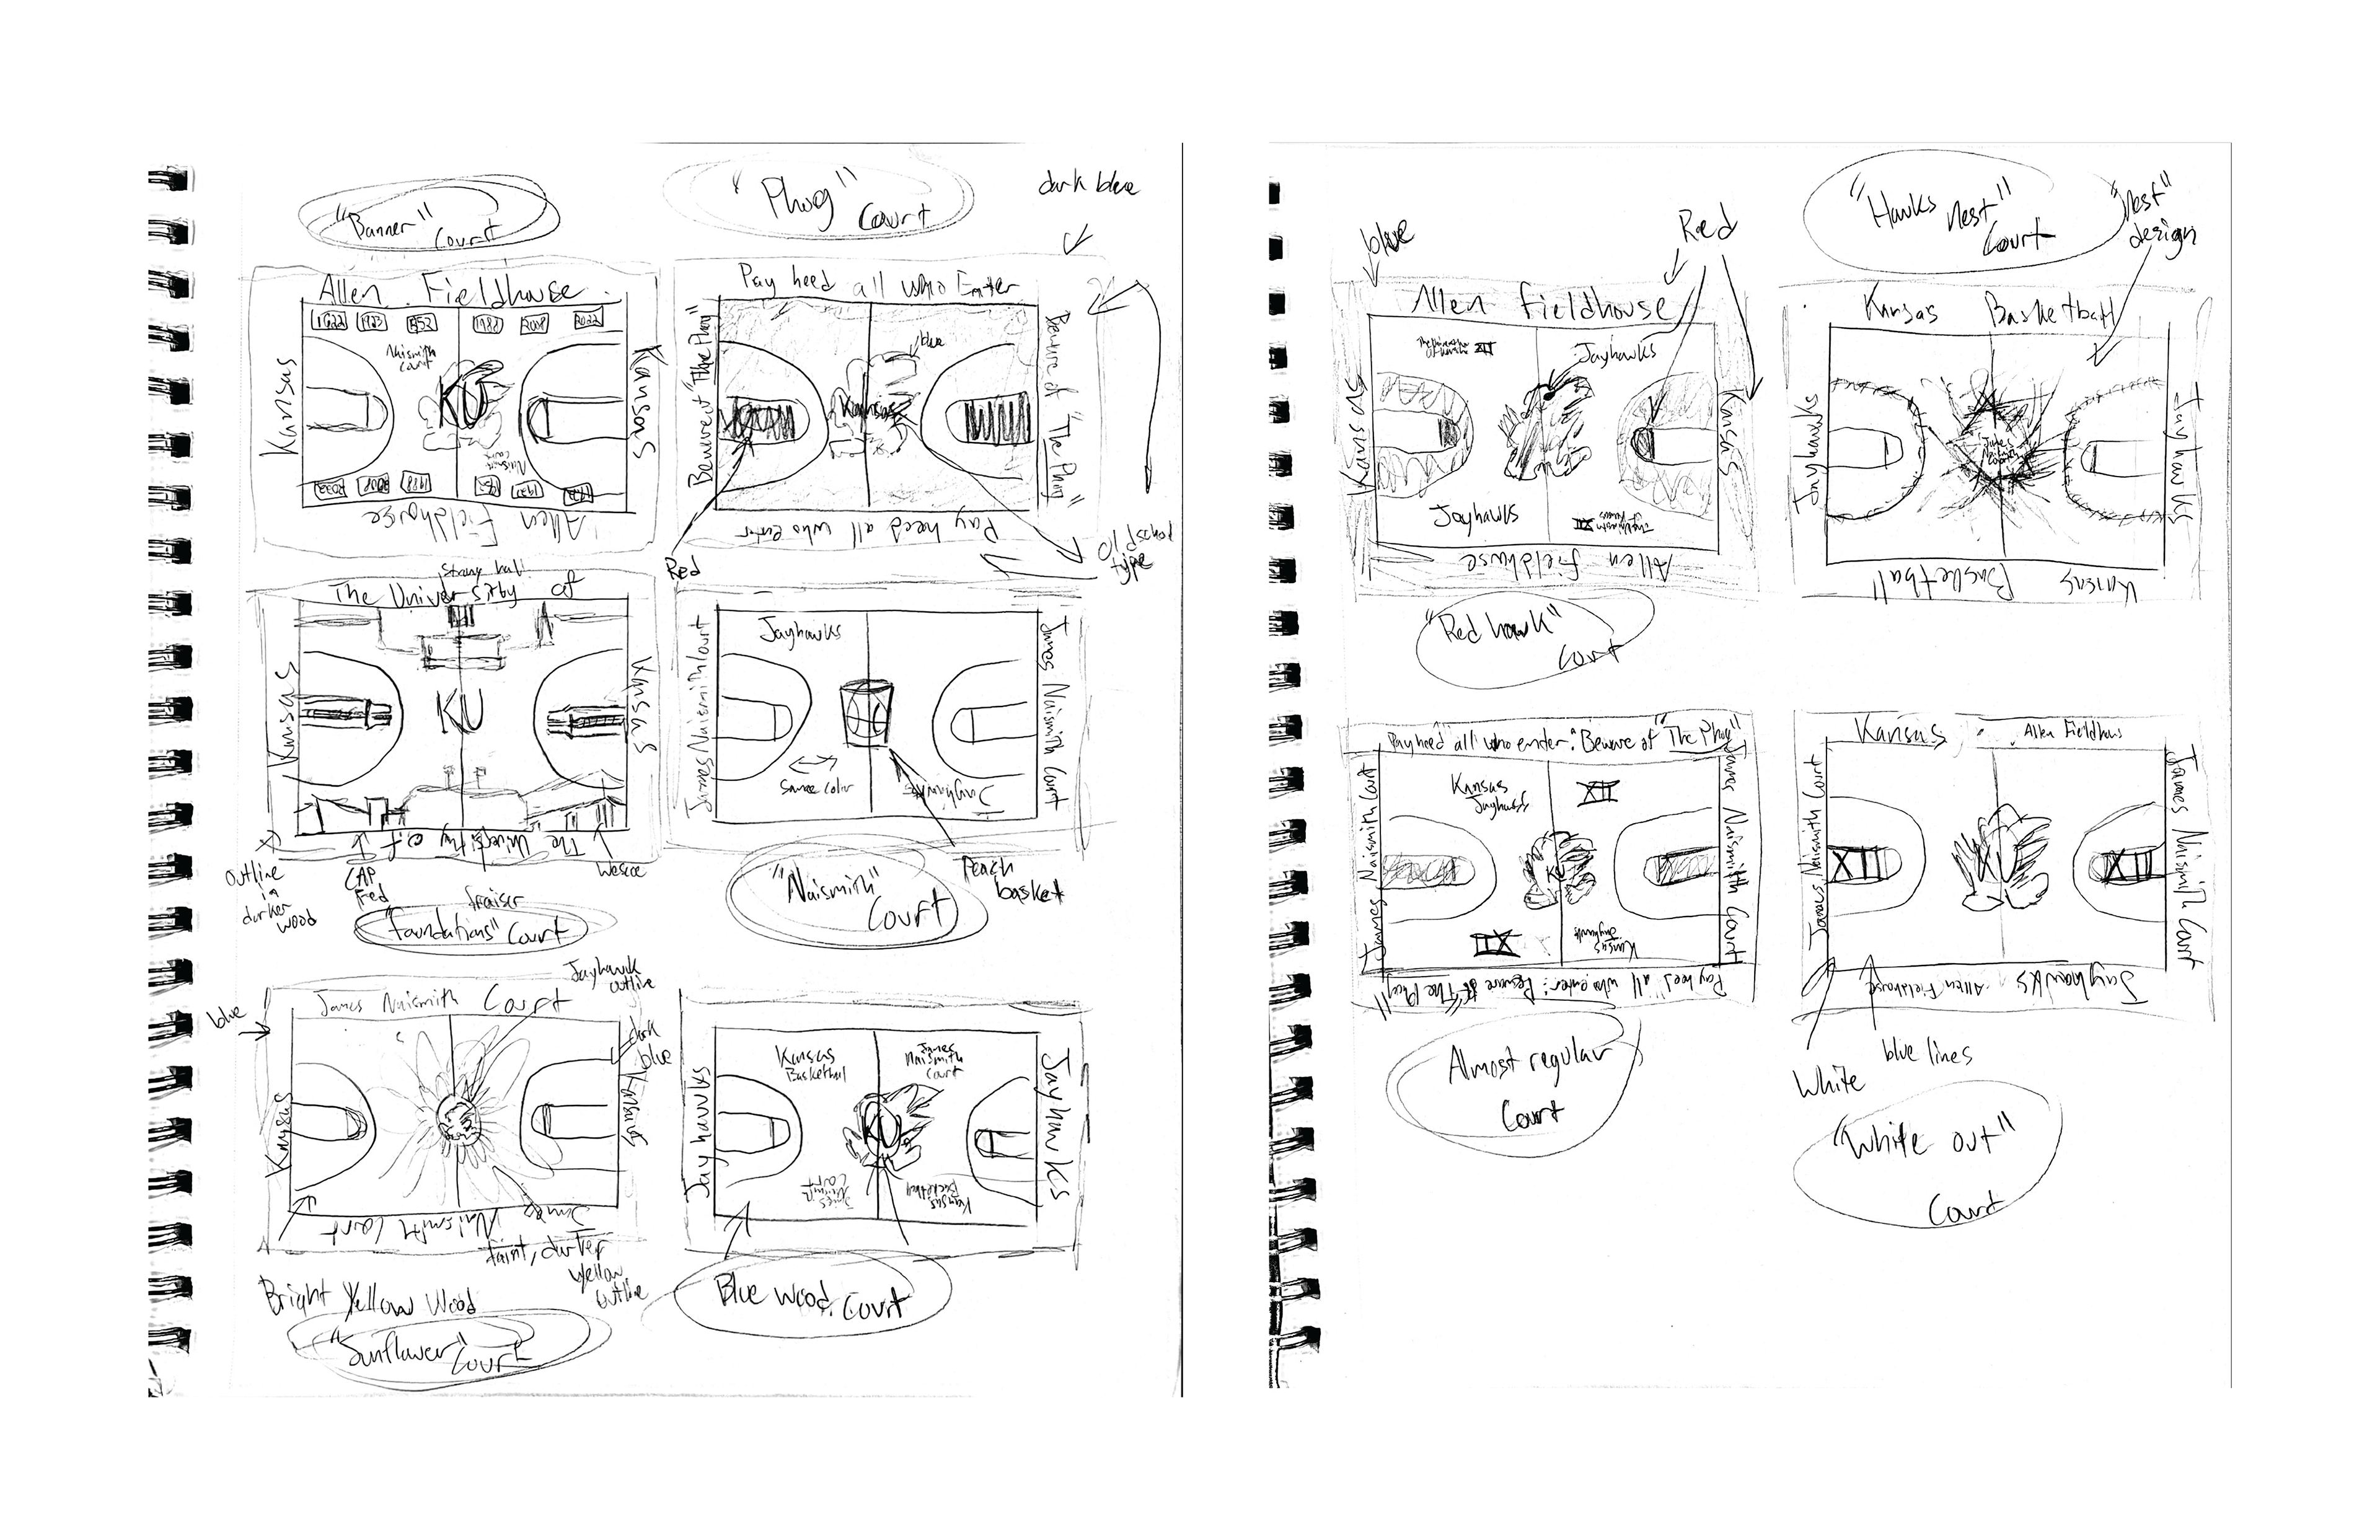 "Banner"
Court
"Phog"
Court
dark blue
Allen Fieldhouse
1922 1923 1952 1988 2008 2022
Naismith
Court
KU
Kansas
Kansas
Naismith
Court
2022 2008 1988 1952 1923 1922
Allen Fieldhouse
Pay heed all who Enter
blue
Kansas
"The Phog"
Beware of "The Phog"
Pay heed all who enter
Red
old school
type
The University of
KU
Kansas
Kansas
The University of
outline
in
darker
wood
CAP
Fed
Wescoe
fraiser
"foundations" Court
Jayhawks
James Naismith Court
James Naismith Court
Same color
Jayhawks
Peach
basket
"Naismith"
Court
Jayhawk
outline
blue
James Naismith Court
dark
blue
Kansas
Kansas
James Naismith Court
faint, darker
yellow
outline
Bright Yellow Wood
"Sunflower"
Court
Kansas
Basketball
James
Naismith
Court
KU
Jayhawks
Jayhawks
James
Naismith
Court
Kansas
Basketball
Blue wood Court
blue
Red
Allen Fieldhouse
XII
Jayhawks
Kansas
Kansas
Jayhawks
XII
Allen Fieldhouse
"Red hawk"
Court
"Hawks
nest"
Court
"nest"
design
Kansas Basketball
Jayhawks
Jayhawks
Kansas Basketball
Pay heed all who enter: "Beware of The Phog"
Kansas
Jayhawks
XII
KU
James Naismith Court
James Naismith Court
XII
Kansas
Jayhawks
Pay heed all who enter: Beware of "The Phog"
Almost regular
Court
Kansas Allen Fieldhous
James Naismith Court
James Naismith Court
XII
KU
XII
Jayhawks Allen Fieldhouse
blue lines
White
"White out"
Court